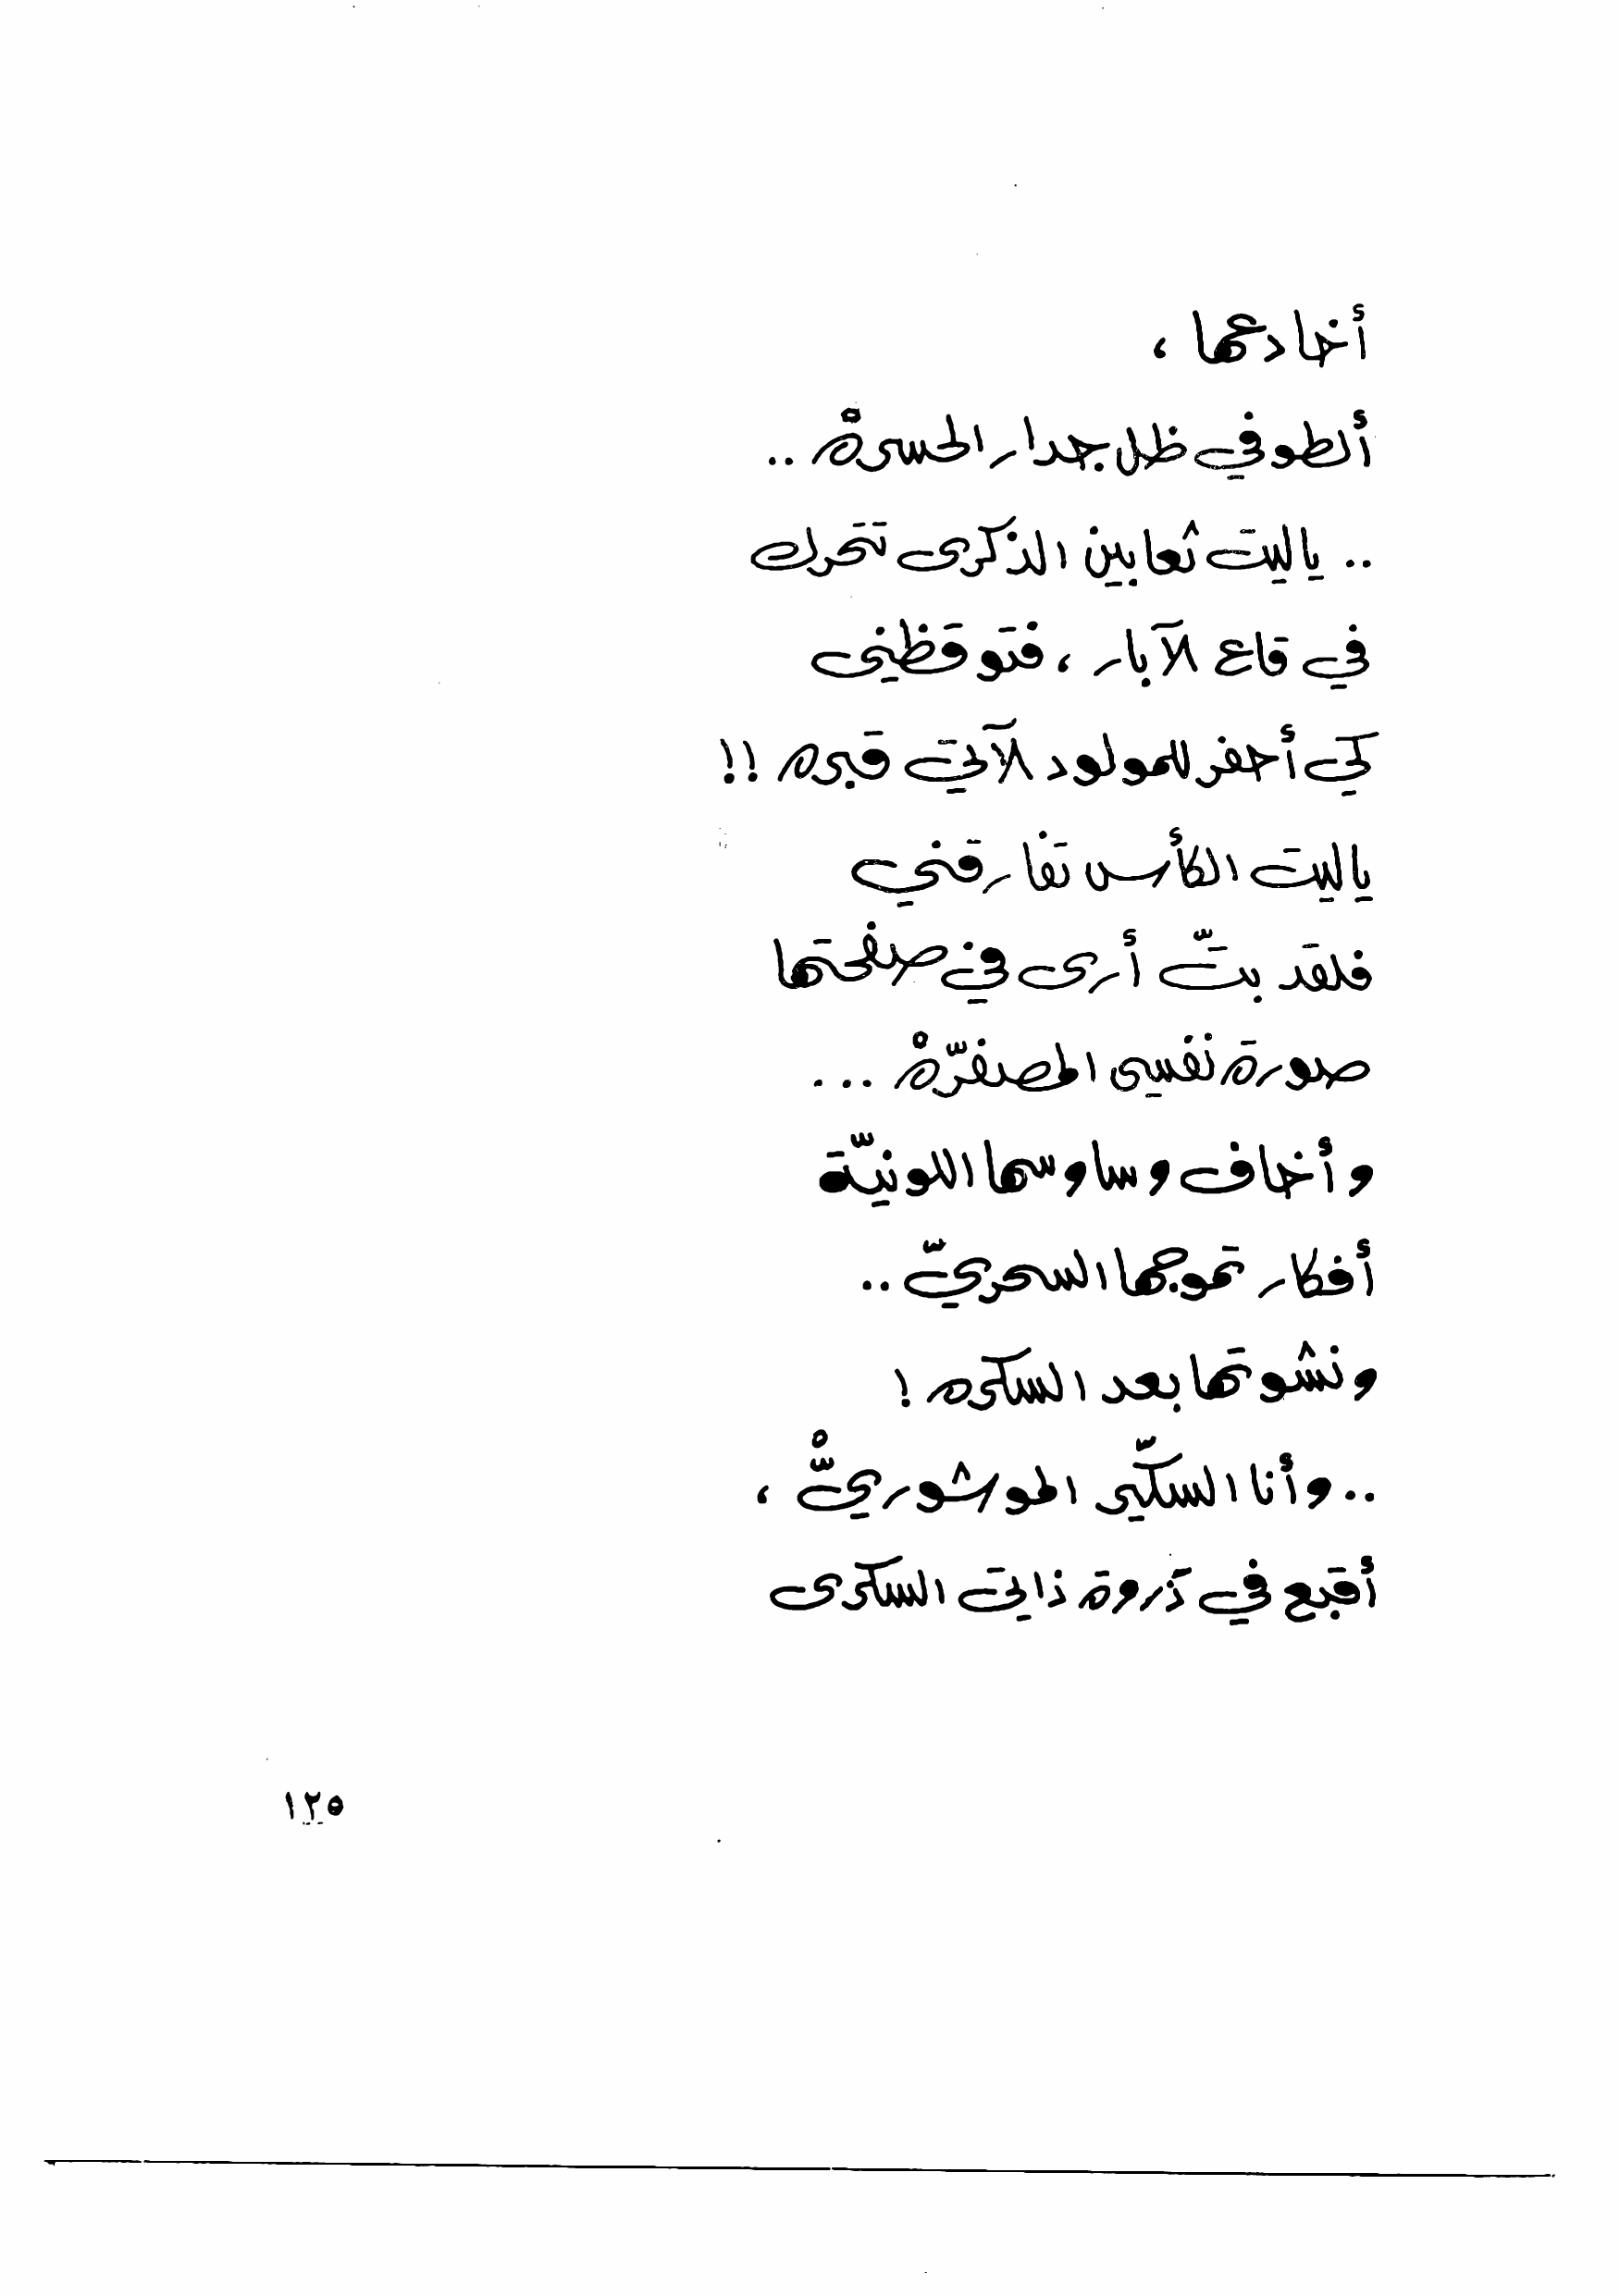 أخادعها ،
ألطو في ظل جدار الحسرهْ ..
.. ياليت ثعابين الذكرى تتحرك
في قاع الآبار ، فتوقظنى
كي أحفر للمولود الآتي قبره !!
ياليت الكأس تفارقني
فلقد بتّ أرى في صفحتها
صورة نفسى المصفرّهْ ...
وأخاف وساوسها اللونيّة
أفكار تموجها السحريّ ..
ونشوتها بعد السكره !
.. وأنا السكّير الموشوريّْ ،
أقبع في ذروة ذاتي السكرى
١٢٥